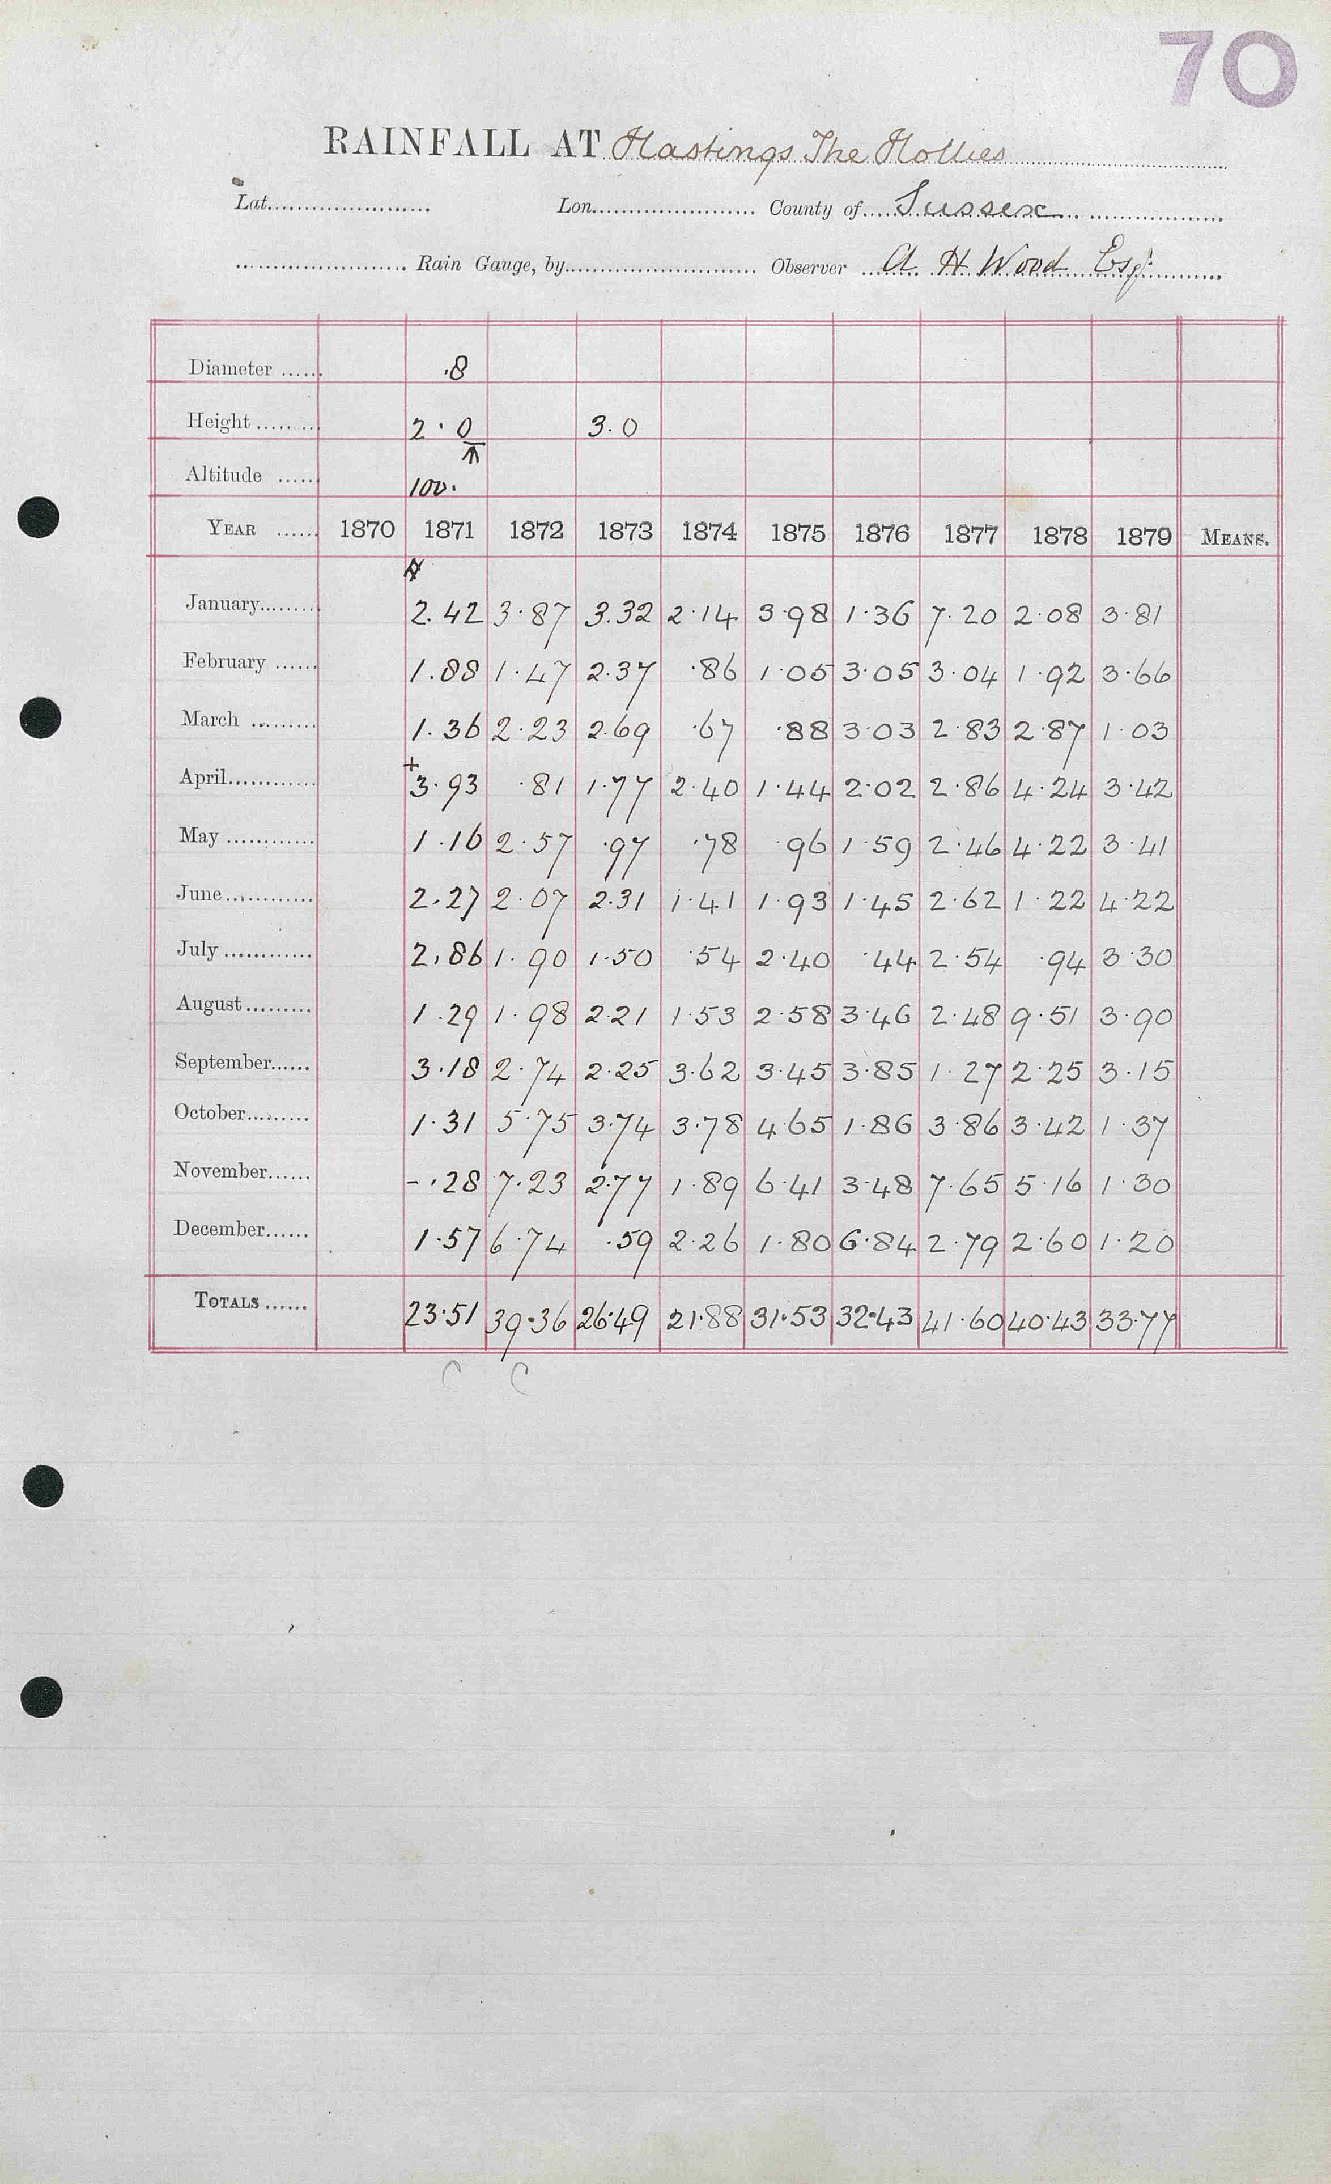 70
RAINFALL AT Hastings The Hollies
Lat. Lon. County of Sussex
Rain Gauge, by Observer A H Wood Esqr
Diameter ...... .8
Height ...... 2.0 3.0
Altitude ...... 100.
YEAR ...... 1870 1871 1872 1873 1874 1875 1876 1877 1878 1879 MEANS.
January 2.42 3.87 3.32 2.14 3.98 1.36 7.20 2.08 3.81
February 1.88 1.47 2.37 .86 1.05 3.05 3.04 1.92 3.66
March 1.36 2.23 2.69 .67 .88 3.03 2.83 2.87 1.03
+
April 3.93 .81 1.77 2.40 1.44 2.02 2.86 4.24 3.42
May 1.16 2.57 .97 .78 .96 1.59 2.46 4.22 3.41
June 2.27 2.07 2.31 1.41 1.93 1.45 2.62 1.22 4.22
July 2.86 1.90 1.50 .54 2.40 .44 2.54 .94 3.30
August 1.29 1.98 2.21 1.53 2.58 3.46 2.48 9.51 3.90
September 3.18 2.74 2.25 3.62 3.45 3.85 1.27 2.25 3.15
October 1.31 5.75 3.74 3.78 4.65 1.86 3.86 3.42 1.37
November -.28 7.23 2.77 1.89 6.41 3.48 7.65 5.16 1.30
December 1.57 6.74 .59 2.26 1.80 6.84 2.79 2.60 1.20
TOTALS ...... 23.51 39.36 26.49 21.88 31.53 32.43 41.60 40.43 33.77
C C